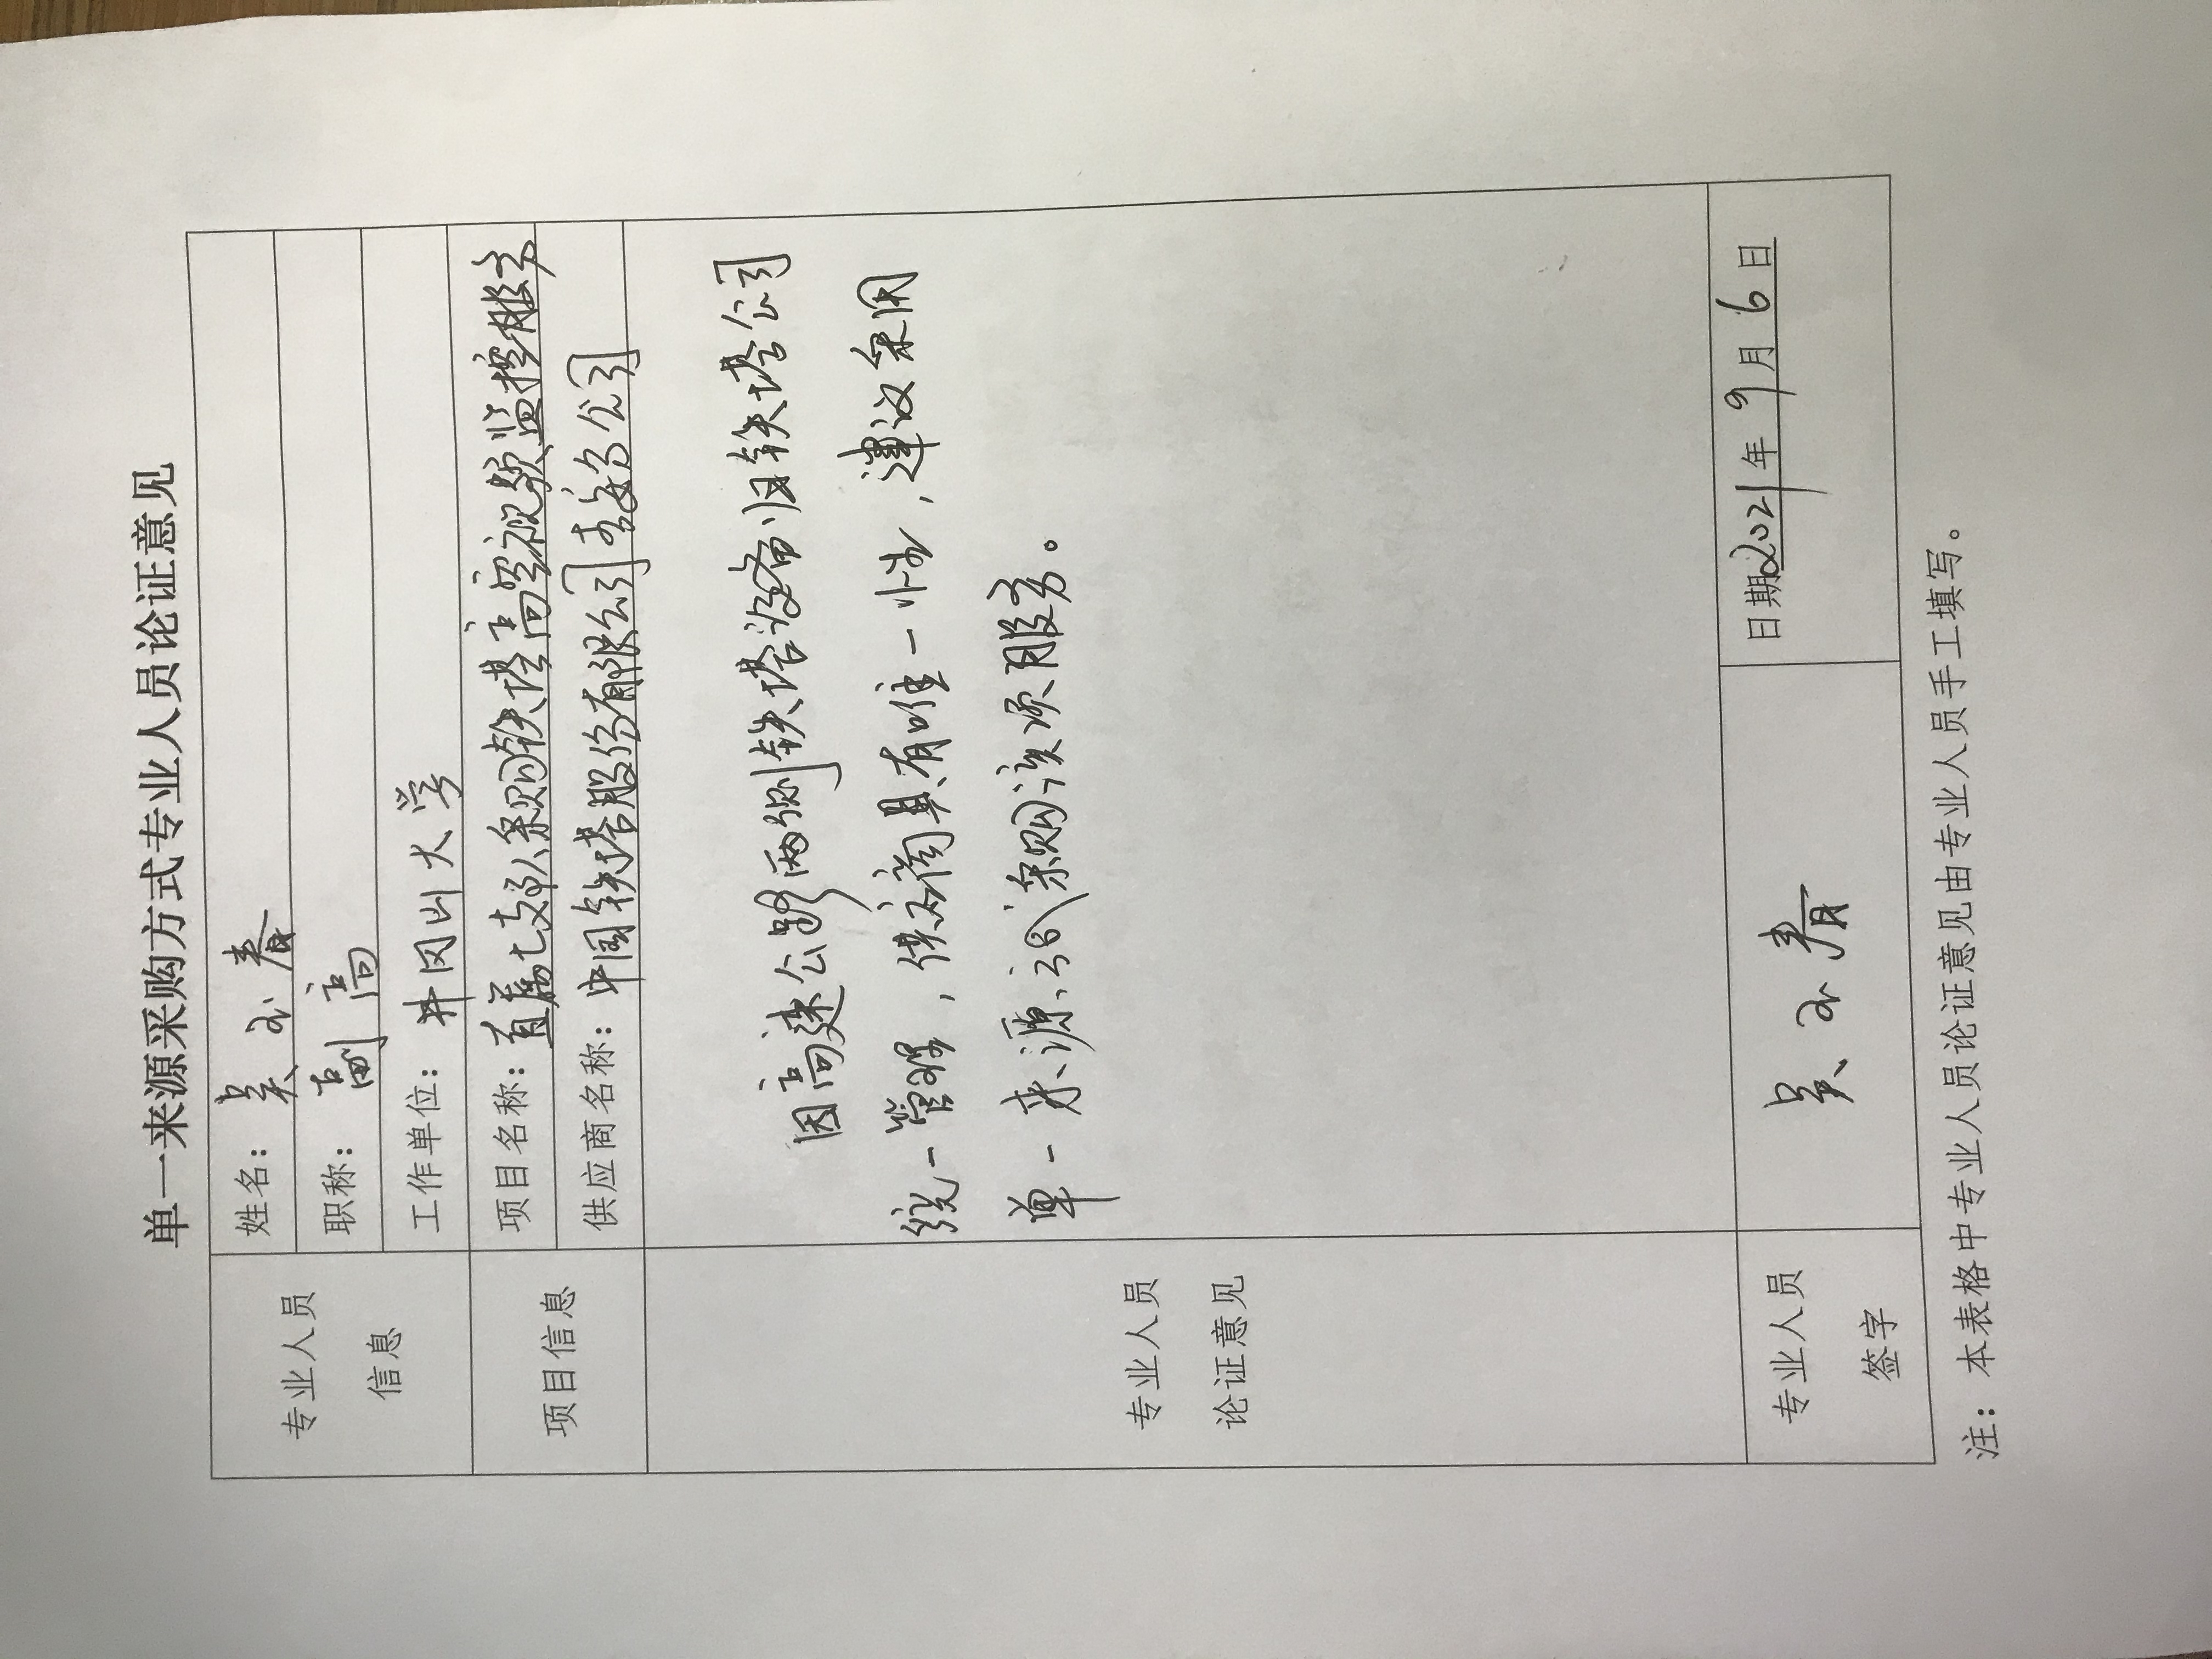 单一来源采购方式专业人员论证意见
专业人员
信息
姓名：吴小春
职称：副高
工作单位：井冈山大学
项目信息
项目名称：直属七支队采购铁塔高空视频监控服务
供应商名称：中国铁塔股份有限公司吉安分公司
专业人员
论证意见
因高速公路两侧铁塔设备归铁塔公司
统一管理，供应商具有唯一性，建议采用
单一来源方式采购该项服务。
专业人员
签字
吴小春
日期2021年9月6日
注：本表格中专业人员论证意见由专业人员手工填写。